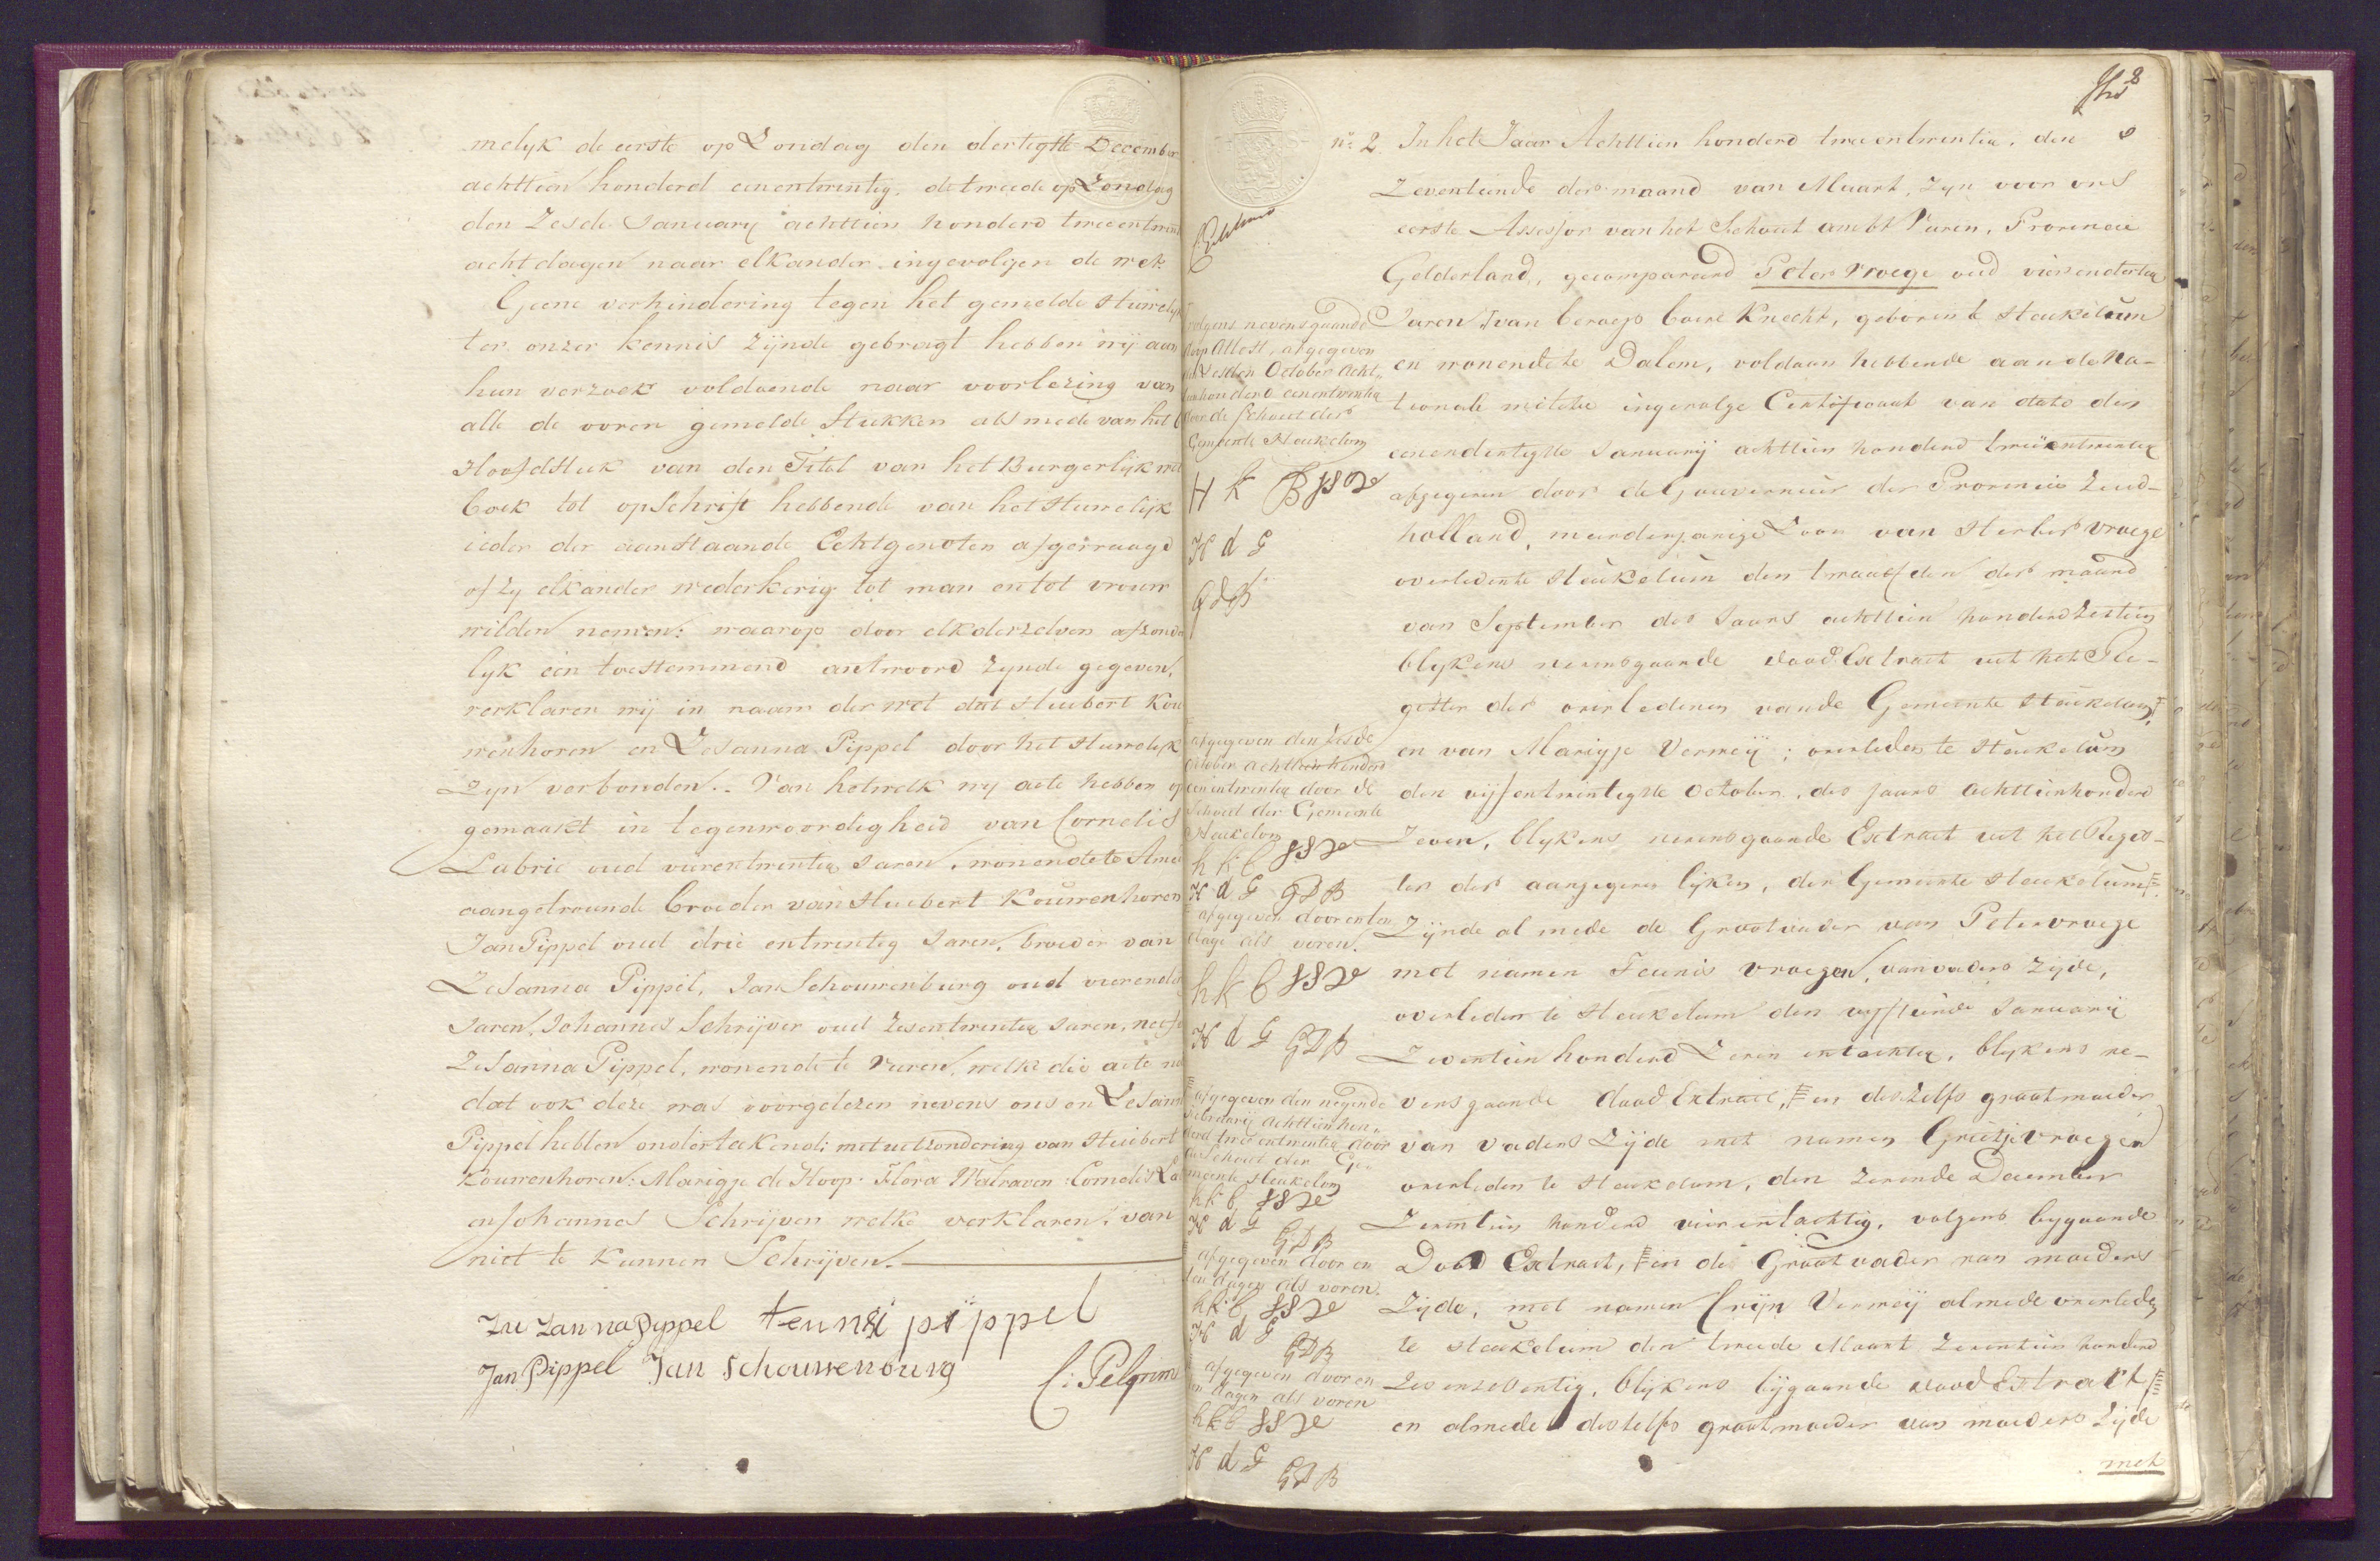 melyk de eerste op Zondag den dertigste December
achttien honderd eenentwintig, de tweede op Zondag
den Zesde January achttien honderd tweeentwint
acht dagen naar elkander ingevolgen de wet.
Geene verhindering tegen het gemelde Huwelyk
ter onzer kennis zijnde gebragt hebben wij aan
hun verzoek voldoende naar voorlezing van
alle de voren gemelde Stukken als mede van het 6
Hoofdstuk van den Titel van het Burgerlijk wet
boek tot opschrift hebbende van het Huwelijk
ieder der aanstaande Echtgenoten afgevraagd
of zy elkander wederkerig tot man en tot vrouw
wilden nemen: waarop door elk derzelven afzonde
lyk een toestemmend antwoord zynde gegeven,
verklaren wij in naam der wet dat Huibert Kou
wenhoven en Zesanna Pippel door het Huwelijk
Zyn verbonden. Van hetwelk wy acte hebben op
gemaakt in tegenwoordigheid van Cornelis
Labrie oud vierentwintig Jaren, wonende te
aangetrouwde broeder van Huibert Kouwenhoven
Jan Pippel oud drie entwintig Jaren, broeder van
Zesanna Pippel, Jan Schouwenburg oud vierende
Jaren, Johannes Schrijver oud Zesentwintig Jaren, neef
Zesanna Pippel, wonende te Vuren, welke die acte na
dat ook deze was voorgelezen nevens ons en Zesann
Pippel hebben onderteekend; met uitzondering van Huibert
Kouwenhoven: Marigje de Hoop: Flora Walraven: Cornelis La
en Johannes Schrijver welke verklaren: van
niet te kunnen Schrijven.
Zu Zan na Pyppel teunis pippel
Jan Pippel Jan Schouwenburg C: Pelgrim
8
No. 2. In het Jaar Achttien honderd twee entwintig, den
Zeventiende der maand van Maart, zyn voor ons
eerste Assessor van het Schout ambt Vuren, Provincie
Gelderland, gecompareerd Peter Vroege oud vierendertig
Jaren van beroep boere Knecht, geboren te Heukelum
en wonende te Dalem, voldaan hebbende aan de Na-
tionale militie ingevolge Certificaat van dato den
eenendertigste Januarij achttien honderd tweeentwintig
afgegeven door de Gouverneur der Provincie Zuid-
holland, meerderjarige Zoon van Herber Vroege
overleden te Heukelum den twaalfden der maand
van September des Jaars achttien honderd Zestien
blykens nevensgaande dood Extract uit het Re-
gister der overledenen van de Gemeente Heukelum,
en van Marigje Vermeij; overleden te Heukelum
den vijfentwintigste October, des Jaars Achttienhonderd
Zeven, blykens nevensgaande Extract uit het Regis-
ter der aangegeven lijken, der Gemeente Heukelum,
Zijnde al mede de Grootvader van Peter vroege
met namen Teunis vroegen, van vaders Zijde,
overleden te Heukelum den vyftiende Januarij
Zeventien honderd Zeven entachtig, blykens ne-
vensgaande dood Extract, en deszelfs grootmoeder
van vaders Zijde met namen Grietje Vroegen
overleden te Heukelum, den Zevende December
Zeventien honderd vierentachtig, volgens bygaande
Dood Extract, en de Grootvader van moeders
Zijde, met namen Crijn Vermeij almede overleden
te Heukelum den tweede Maart Zeventien honderd
Zes enzeventig, blijkens bijgaande dood Extract
en almede deszelfs grootmoeder van moeders Zijde
met
volgens nevensgaande
doop Attest, afgegeven
den Zesden October Acht-
tienhonderd eenentwintig
door de Schout der
Gemeente Heukelom
H K B
H d G
G d B
afgegeven den Zesde
October achttienhonderd
eenentwintig door de
Schout der Gemeente
Heukelom
h k b
H d G G D B
afgegeven door en ten
dage als voren.
h k b
H d G G D B
afgegeven den negende
Februarij Achttien hon-
derd twee entwintig door
de Schout der Ge-
meente Heukelom
h k b
H d G
G D B
afgegeven door en
ten dagen als voren.
h k b
H d G
G D B
afgegeven door en
ten dagen als voren
h k b
H d G
G D B